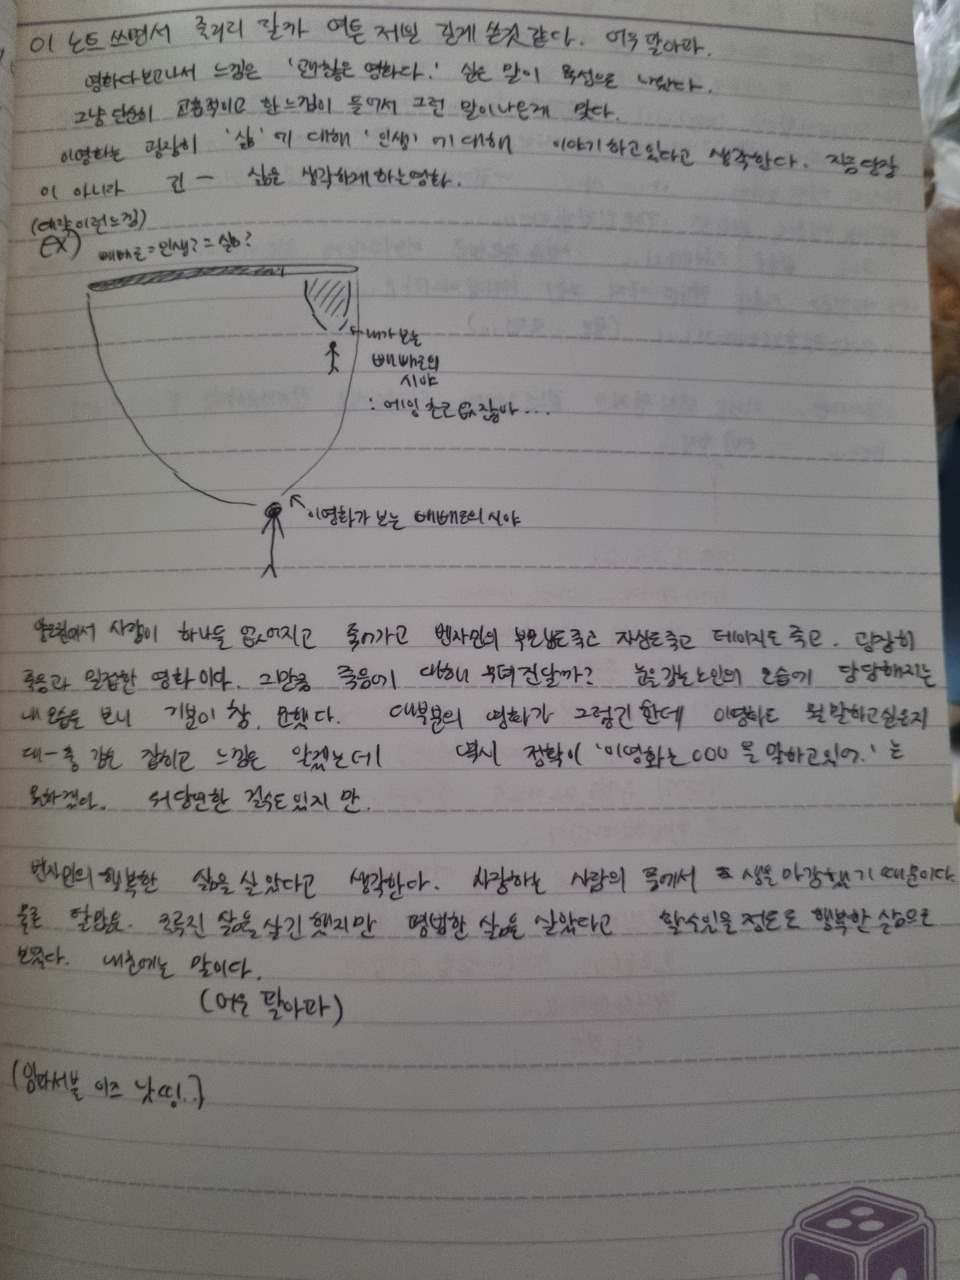 이 노트 쓰면서 줄거리 할까 여튼 저번 길게 쓴것 같다. 어우 팔아파.
영화다보고나서 느낌은 '괜찮은 영화다.' 싶은 말이 육성으로 나왔다.
그냥 단순히 교훈적이고 한 느낌이 들어서 그런 말이나온게 맞다.
이영화는 굉장히 '삶'에 대해 '인생'에대해 이야기하고있다고 생각한다. 지금 당장
이 아니라 긴ㅡ 삶을 생각하게하는영화.
(대략이런느낌)
EX) 빼빼로=인생?=삶?
내가 보는
빼빼로의
시야
: 에잉 초코 없잖아...
이영화가 보는 빼빼로의 시야
양로원에서 사람이 하나둘 없어지고 죽어가고 벤자민의 부모님도죽고 자신도죽고 데이지도 죽고. 굉장히
죽음과 밀접한 영화이다. 그만큼 죽음에 대해 무뎌진달까? 눈을감는노인의 모습에 담담해지는
내 모습을 보니 기분이 참, 묘했다. 대부분의 영화가 그렇긴 한데 이영화도 뭘 말하고싶은지
대ㅡ충 감은 잡히고 느낌은 알겠는데 역시 정확이 '이영화는 OOO를 말하고있어.'는
못하겠다. 당연한 걸수도있지 만.
벤자민의 행복한 삶을 살았다고 생각한다. 사랑하는 사람의 품에서 생을 마감했기 때문이다
물론 탈많은. 굴곡진 삶을 살긴 했지만 평범한 삶을 살았다고 할수있을정도로 행복한 삶으로
보였다. 내눈에는 말이다.
(어우 팔아파)
(임파서블 이즈 낫띵..)